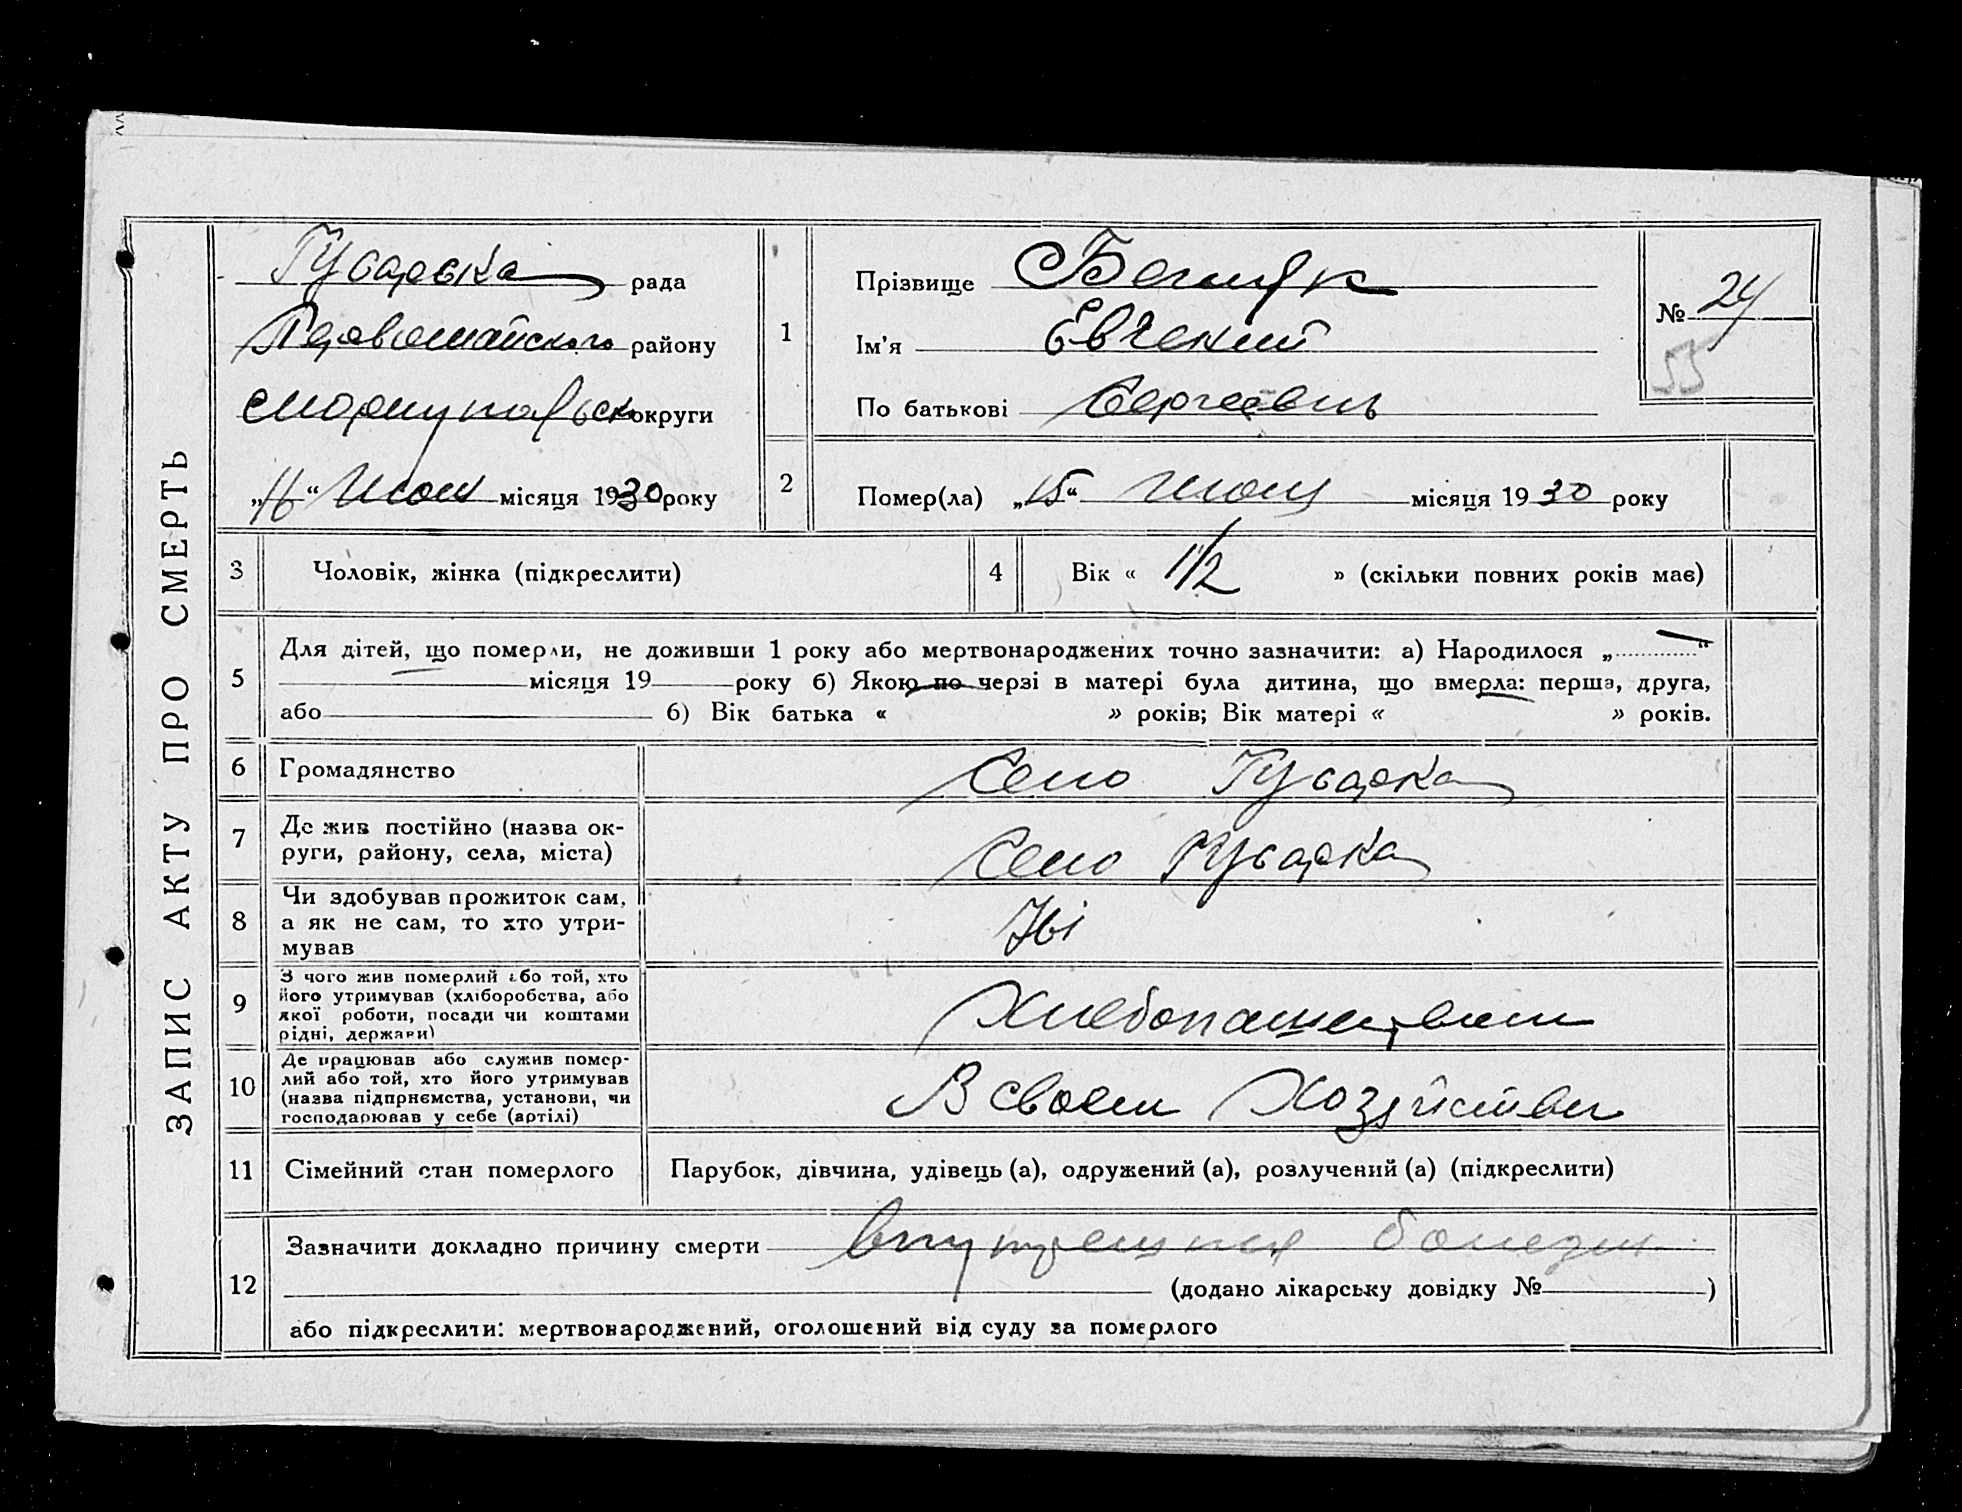 ЗАПИС АКТУ ПРО СМЕРТЬ
Гусарська рада
Первомайского району
округи
„16“ Июля місяця 1930 року
1
Прізвище Беляк
Ім'я Евгений
По батькові Сергеевич
№ 24
55
2
Помер(ла) „15“ Июля місяця 1930 року
3 Чоловік, жінка (підкреслити)
4 Вік « 1/2 » (скільки повних років має)
5
Для дітей, що померли, не доживши 1 року або мертвонароджених точно зазначити: а) Народилося „ “
місяця 19 року б) Якою по черзі в матері була дитина, що вмерла: перша, друга,
або б) Вік батька « » років; Вік матері « » років.
6 Громадянство Село Гусарка
7 Де жив постійно (назва ок-
руги, району, села, міста)
Село Гусарка
8 Чи здобував прожиток сам,
а як не сам, то хто утри-
мував
9 З чого жив померлий або той, хто
його утримував (хліборобства, або
якої роботи, посади чи коштами
рідні, держави)
Хлебопашеством
10 Де працював або служив помер-
лий або той, хто його утримував
(назва підприємства, установи, чи
господарював у себе (артілі)
В своем Хозяйстве
11 Сімейний стан померлого
Парубок, дівчина, удівець (а), одружений (а), розлучений (а) (підкреслити)
12
Зазначити докладно причину смерти внутреняя болезнь
(додано лікарську довідку № )
або підкреслити: мертвонароджений, оголошений від суду за померлого